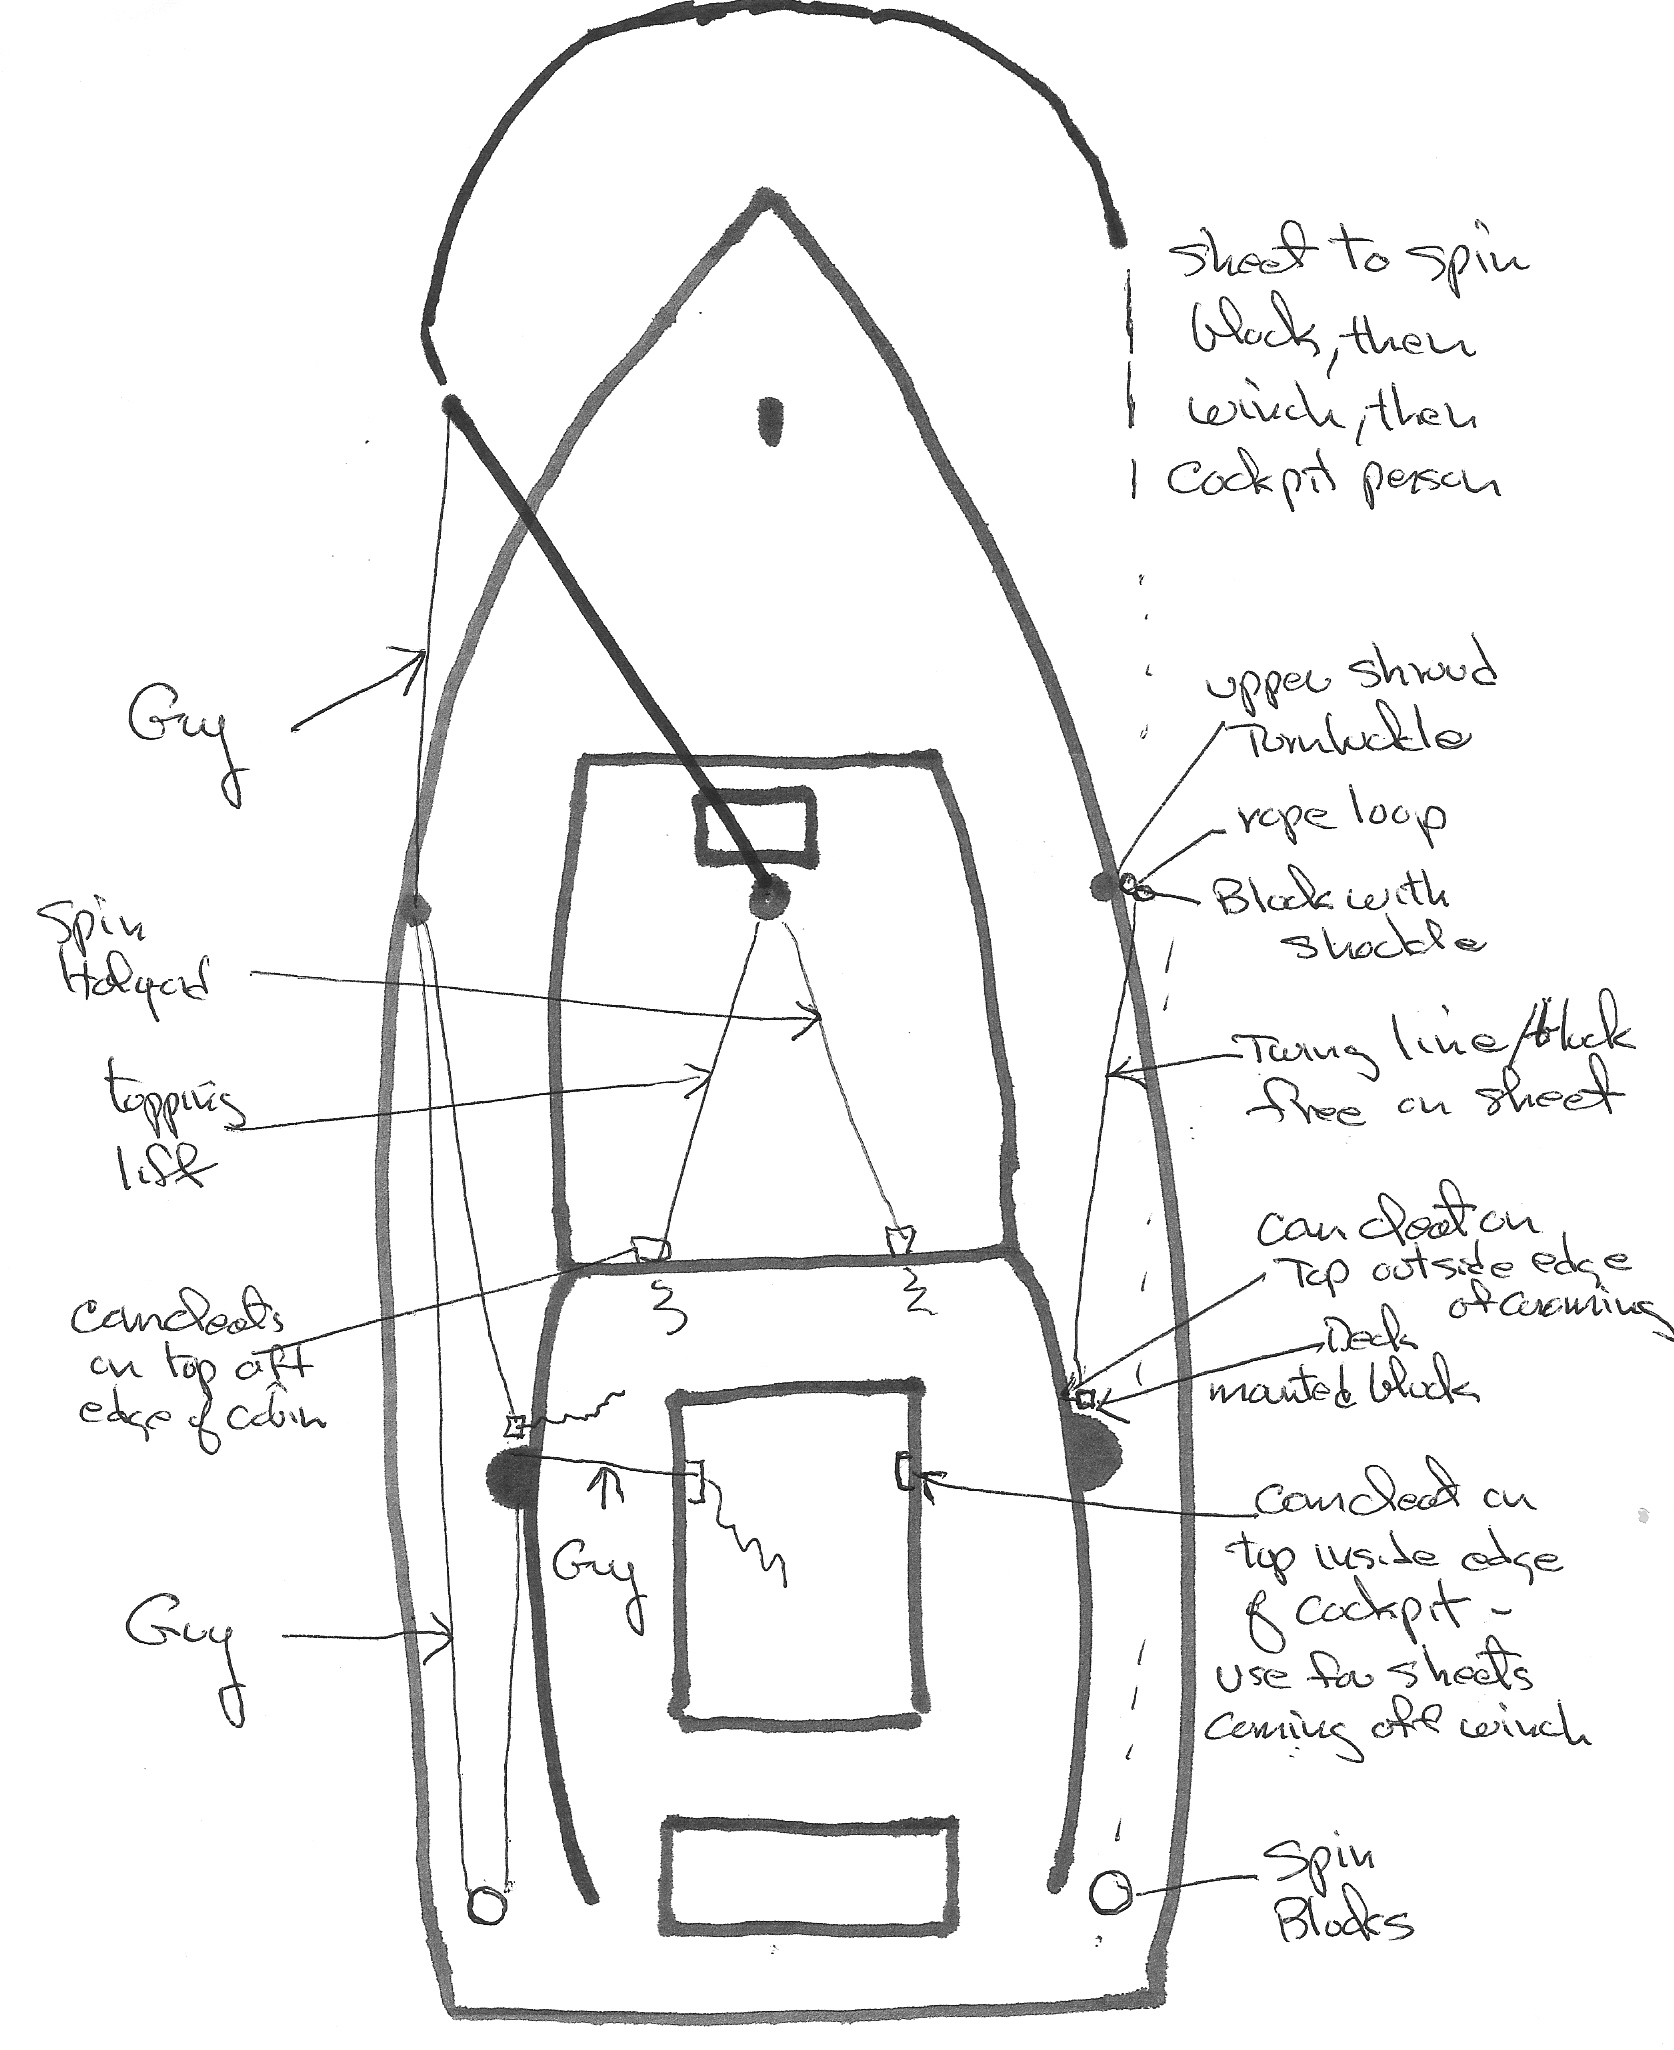 sheet to spin
block, then
winch, then
cockpit person
upper shroud
Turnbuckle
rope loop
Block with
shackle
Guy
Spin
Halyard
topping
lift
Twing line/block
free on sheet
cam cleat on
Top outside edge
of coaming
Deck
mounted block
cam cleats
on top aft
edge of cabin
Guy
cam cleat on
top inside edge
of cockpit -
use for sheets
coming off winch
Guy
Spin
Blocks